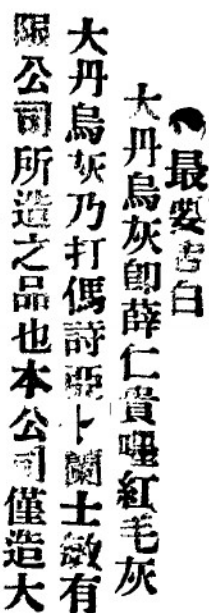 最要告白
大丹烏灰卽薛仁貴嘜紅毛灰
大丹烏灰乃打僞詩亞卜蘭士敏有
限公司所造之品也本公司僅造大